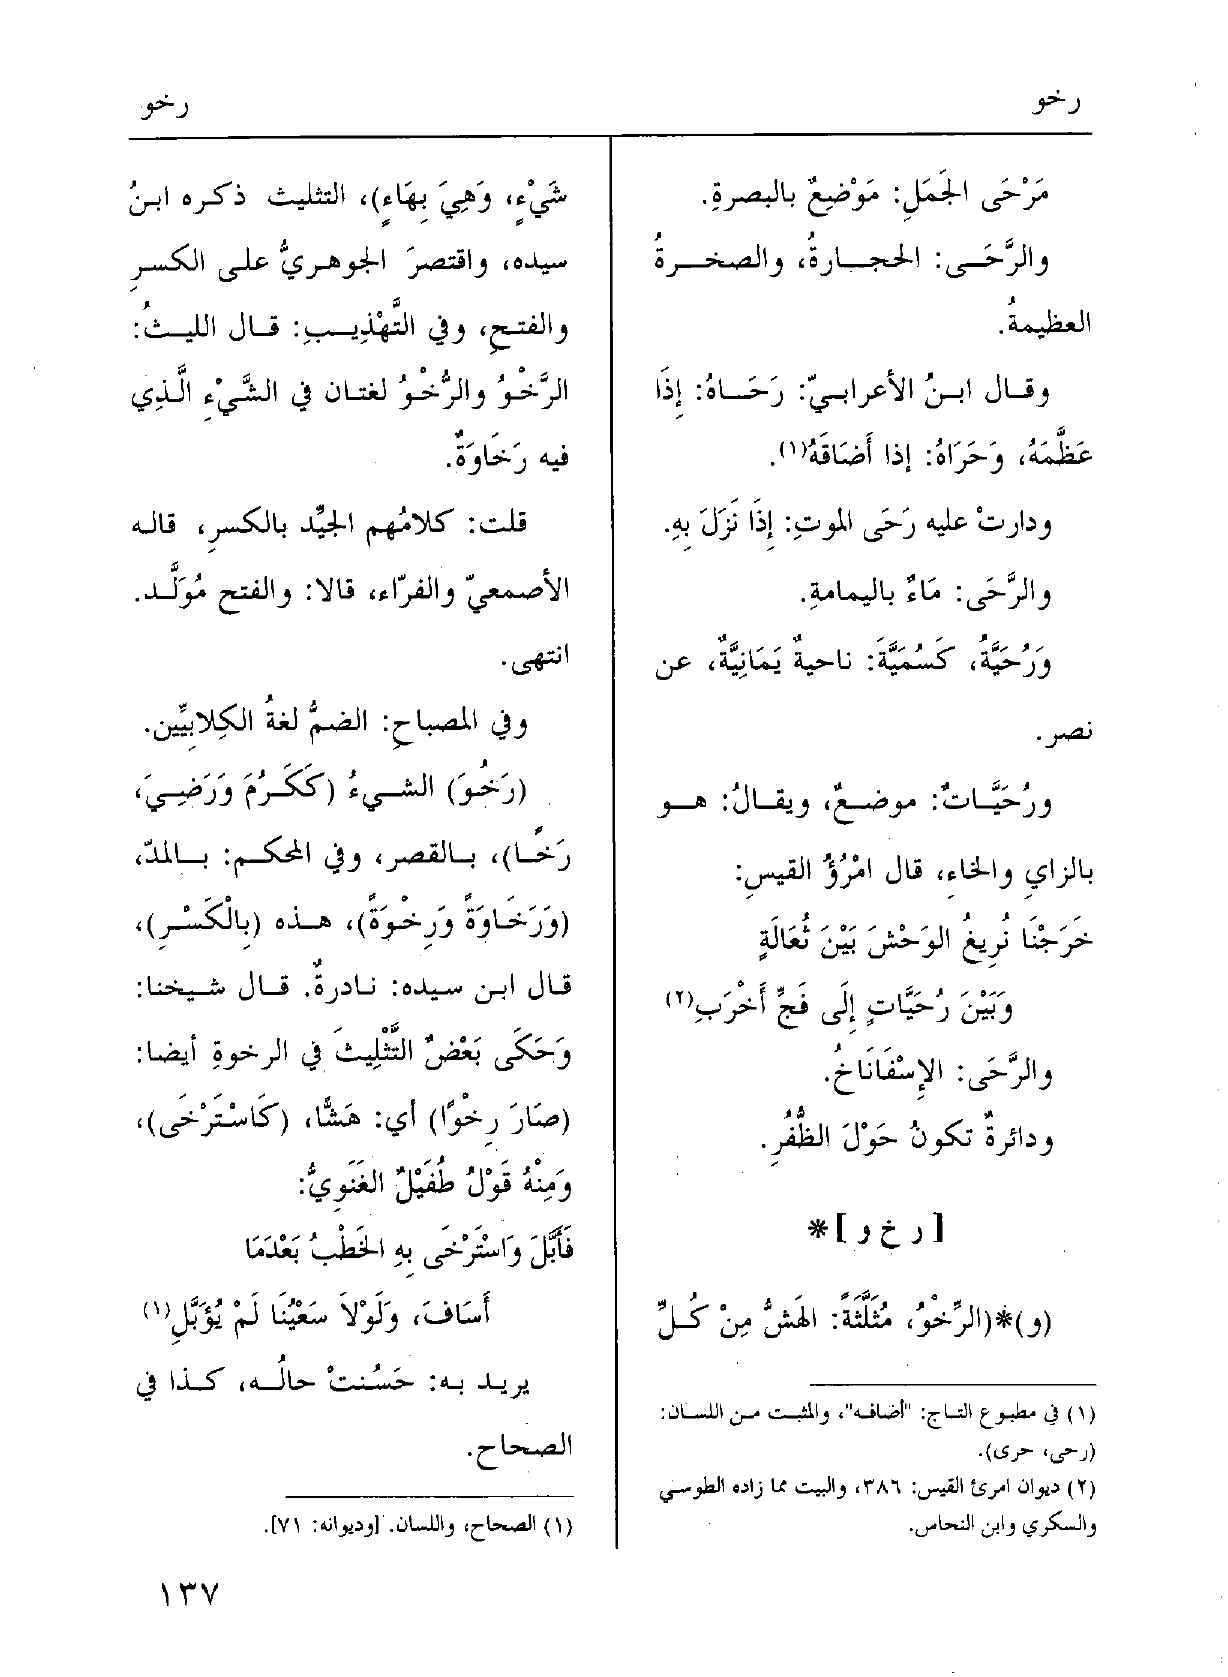 رخو
رخو
مَرْحَى الجَمَلِ: مَوْضِعٌ بالبصرةِ.
والرَّحَى: الحجارةُ، والصخرةُ
العظيمةُ.
وقال ابنُ الأعرابيّ: رَحَاهُ: إِذَا
عَظَّمَهُ، وَحَرَاهُ: إذا أَضَاقَهُ(١).
ودارتْ عليه رَحَى الموتِ: إِذَا نَزَلَ بِهِ.
والرَّحَى: مَاءٌ باليمامةِ.
وَرُحَيَّةُ، كَسُمَيَّةَ: ناحيةٌ يَمَانِيَّةٌ، عن
نصر.
ورُحَيَّاتٌ: موضعٌ، ويقالُ: هو
بالزاي والخاءِ، قال امْرُؤُ القيسِ:
خَرَجْنَا نُرِيغُ الوَحْشَ بَيْنَ ثُعَالَةٍ
وَبَيْنَ رُحَيَّاتٍ إِلَى فَجِّ أَخْرَبِ(٢)
والرَّحَى: الإِسْفَانَاخُ.
ودائرةٌ تكونُ حَوْلَ الظُّفُرِ.
[ر خ و]*
(و)*(الرِّخْوُ، مُثَلَّثَةً: الهَشُّ مِنْ كُلِّ
(١) في مطبوع التاج: "أضافه"، والمثبت من اللسان:
(رحى، حرى).
(٢) ديوان امرئ القيس: ٣٨٦، والبيت مما زاده الطوسي
والسكري وابن النحاس.
شَيْءٍ، وَهِيَ بِهَاءٍ)، التثليث ذكره ابنُ
سيده، واقتصرَ الجوهريُّ على الكسرِ
والفتحِ، وفي التَّهْذِيبِ: قال الليثُ:
الرَّخْوُ والرُّخْوُ لغتان في الشَّيْءِ الَّذِي
فيه رَخَاوَةٌ.
قلت: كلامُهم الجيِّد بالكسرِ، قاله
الأصمعيّ والفرّاء، قالا: والفتح مُوَلَّد.
انتهى.
وفي المصباحِ: الضمُّ لغةُ الكِلابيِّين.
(رَخُوَ) الشيءُ (كَكَرُمَ وَرَضِيَ،
رَخًا)، بالقصرِ، وفي المحكم: بالمدّ،
(وَرَخَاوَةً وَرِخْوَةً)، هذه (بِالْكَسْرِ)،
قال ابن سيده: نادرةٌ. قال شيخنا:
وَحَكَى بَعْضٌ التَّثْلِيثَ في الرخوةِ أيضا:
(صَارَ رِخْوًا) أي: هَشًّا، (كَاسْتَرْخَى)،
وَمِنْهُ قَوْلُ طُفَيْلٌ الغَنَوِيُّ:
فَأَبَّلَ وَاسْتَرْخَى بِهِ الخَطْبُ بَعْدَمَا
أَسَافَ، وَلَوْلاَ سَعْيُنَا لَمْ يُؤَبَّلِ(١)
يريد به: حَسُنتْ حالُه، كذا في
الصحاح.
(١) الصحاح، واللسان. [وديوانه: ٧١].
١٣٧